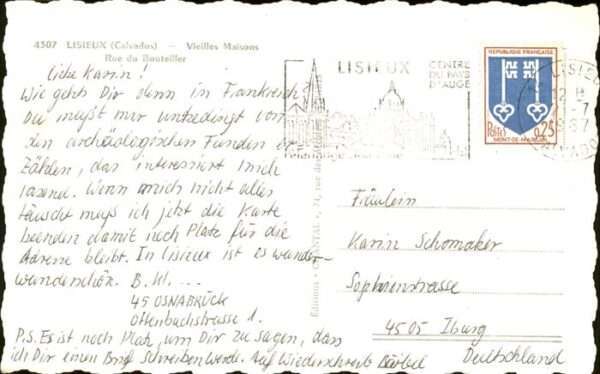 4507 LISIEUX (Calvados) — Vieilles Maisons
Rue du Bouteiller
Liebe Karin!
Wie gehts Dir denn in Frankreich
Du mußt mir unbedingt von
den archäologischen Funden er-
zählen, das interessiert mich
rasend. Wenn mich nicht alles
täuscht muß ich jetzt die Karte
beenden damit noch Platz für die
Adresse bleibt. In Lisieux ist es wunder-
wunderschön. B. W. ...
45 OSNABRÜCK
Ottenbachstrasse 1.
P.S. Es ist noch Platz, um Dir zu sagen, das
ich Dir einen Brief schreiben werde. Auf Wiederschreib Bärbel
LISIEUX
CENTRE
DU PAYS
D'AUGE
REPUBLIQUE FRANÇAISE
Postes
0,25
MONT-DE-MARSAN
LISIEUX
12 H
-7
1967
CALVADOS
Fräulein
Karin Schomaker
Sophienstrasse
4505 Iburg
Deutschland
Editions